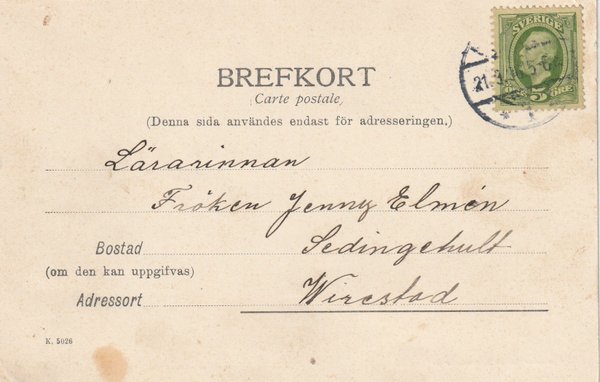 SVERIGE
5
ÖRE
21.
BREFKORT
Carte postale,
(Denna sida användes endast för adresseringen.)
Lärarinnan
Fröken Jenny Elmén
Bostad Sedingehult
(om den kan uppgifvas)
Adressort Wirestad
K. 5026